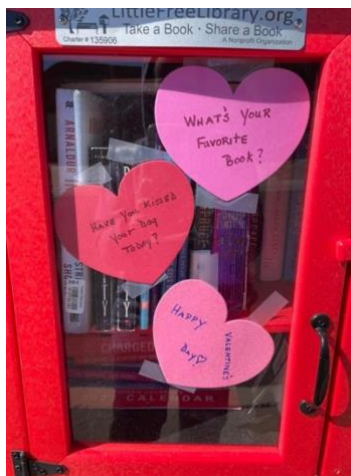 LittleFreeLibrary.org
Take a Book · Share a Book
Charter # 135906
A Nonprofit Organization
WHAT'S YOUR
FAVORITE
BOOK?
HAVE YOU KISSED
YOUR DOG
TODAY?
HAPPY
VALENTINE'S
DAY♡
ARNALDUR
CHARGED
CALENDAR